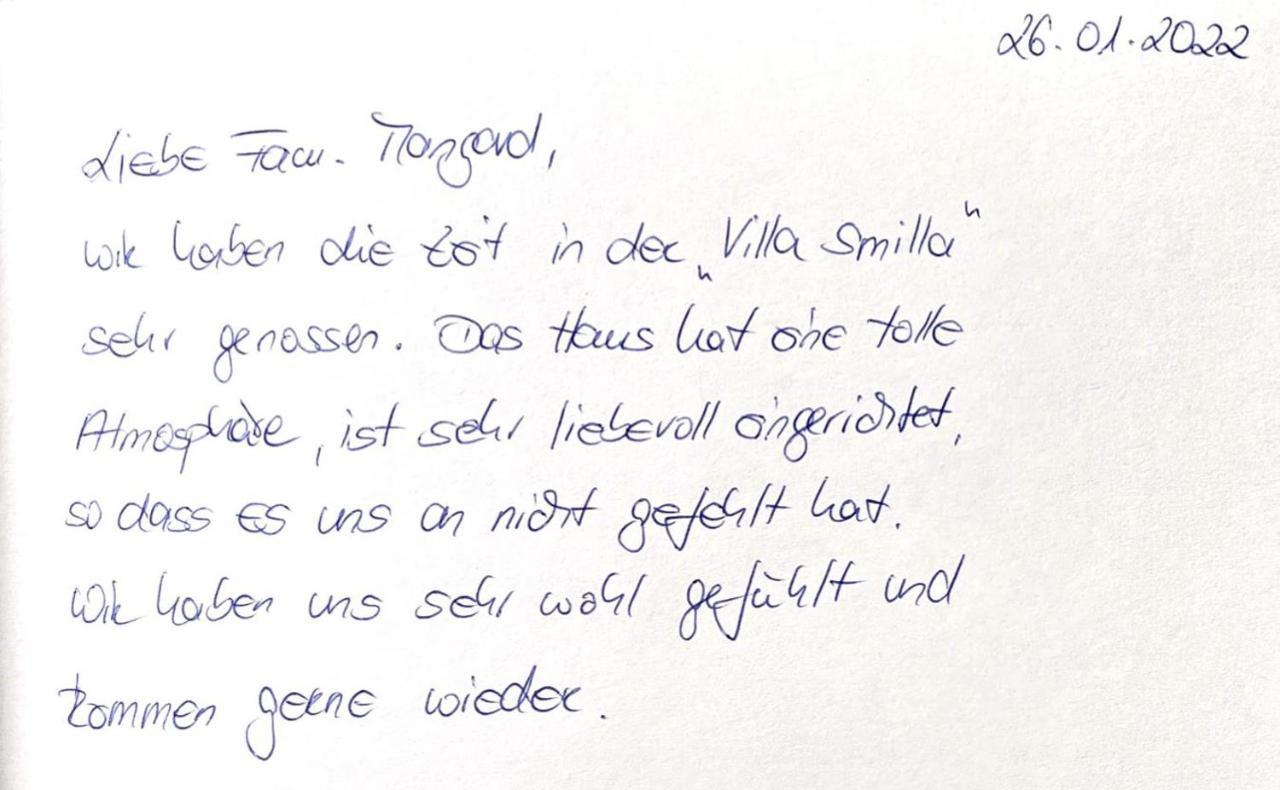 26.01.2022
Liebe Fam.
wir haben die Zeit in der „Villa Smilla"
sehr genossen. Das Haus hat eine tolle
Atmosphäre, ist sehr liebevoll eingerichtet,
so dass es uns an nicht gefehlt hat.
Wir haben uns sehr wohl gefühlt und
kommen gerne wieder.